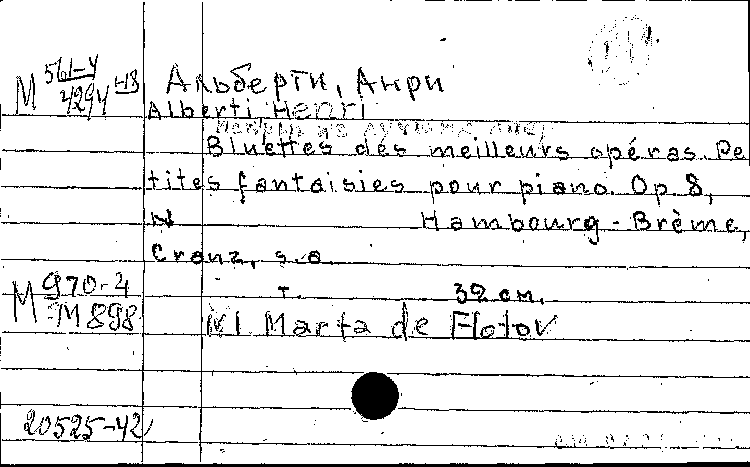 М 561-4
4294-13
Альберти, Анри
Alberti Henri
Bluettes des meilleurs opéras. Pe
tites fantaisies pour piano. Op. 8,
N Hambourg - Brème,
Cranz, s.a.
М 970-4
М 898
т. 32 см.
N1 Marta de Flotov
20525-42